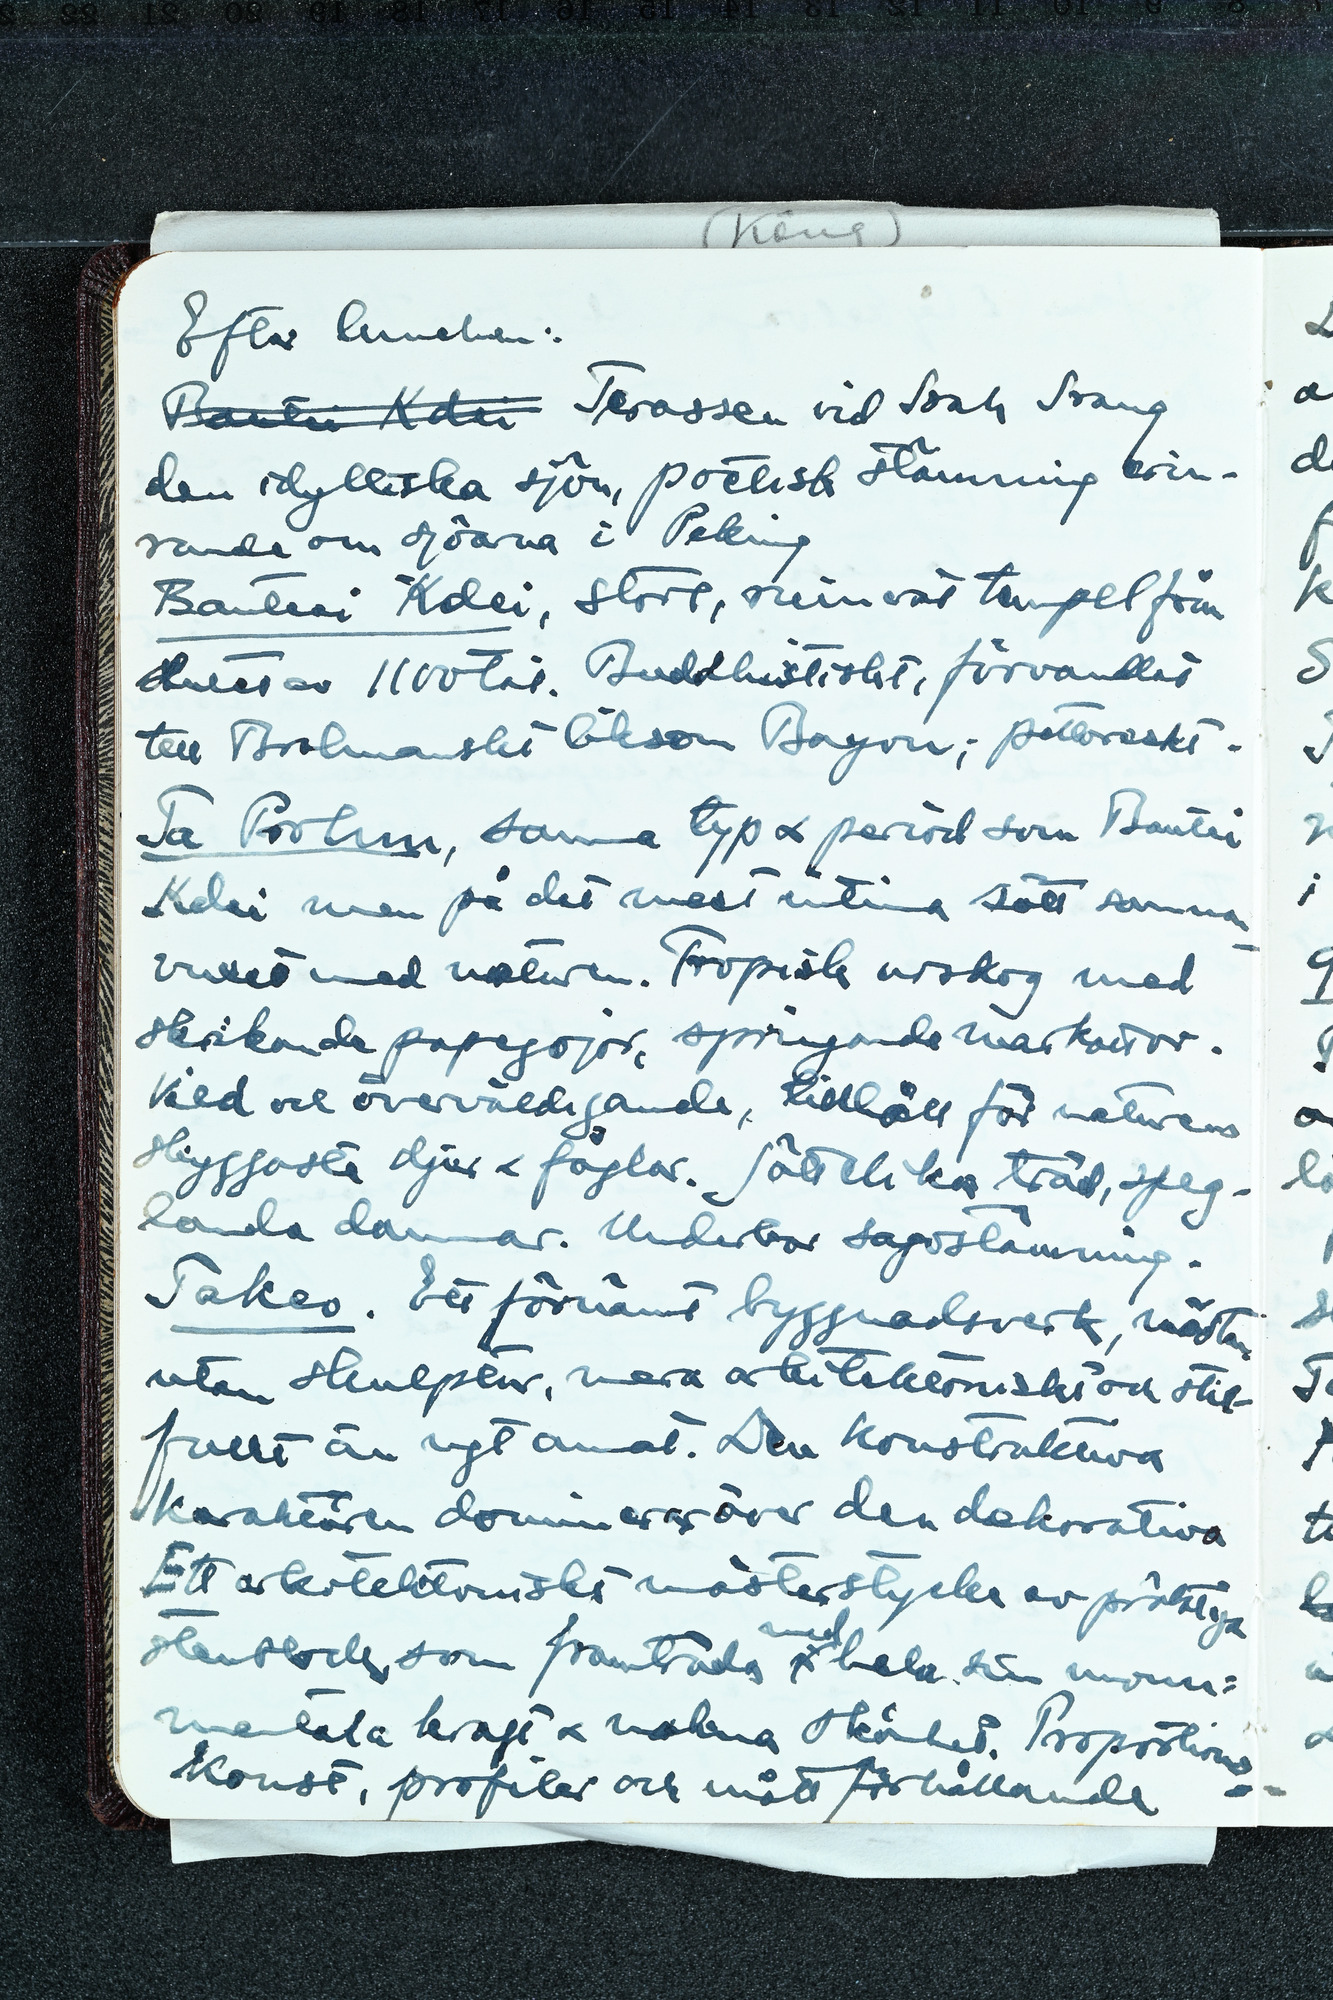 (Kāng)
Efter lunchen:
Bantei Kdei Terassen vid Srah Srang
den idylliska sjön, poetisk stämning erin-
rande om sjöarna i Peking
Banteai Kdei, stort, ruinerat tempel från
slutet av 1100 talet. Buddhistiskt, förvandlat
till Brahmanskt liksom Bayon; pittoreskt.
Ta Prohm, samma typ & period som Bantei
Kdei men på det mest intima sätt samman-
vuxet med naturen. Tropisk urskog med
skrikande papegojor, springande markattor.
Vild och överväldigande, tillhåll för naturens
skyggaste djur & fåglar. Jättelika träd, speg-
lande dammar. Underbar sagostämning.
Takeo. Ett förnämt byggnadsverk, nästan
utan skulptur, mera arkitektoniskt och stil-
fullt än ngt annat. Den konstruktiva
karaktären dominerar över den dekorativa
Ett arkitektoniskt mästerstycke av präktiga
stenblock, som framträda med hela sin monu-
mentala kraft & nakna skönhet. Proportions-
konst, profiler och mått förhållande